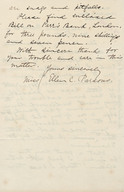 on snags and pitfalls.
Please find enclosed
Bill on Parr's Bank, London,
for three pounds, nine shillings
and seven pence.
With sincere thanks for
your trouble and care in this
matter.
Yours sincerely
(Miss) Ellen C.